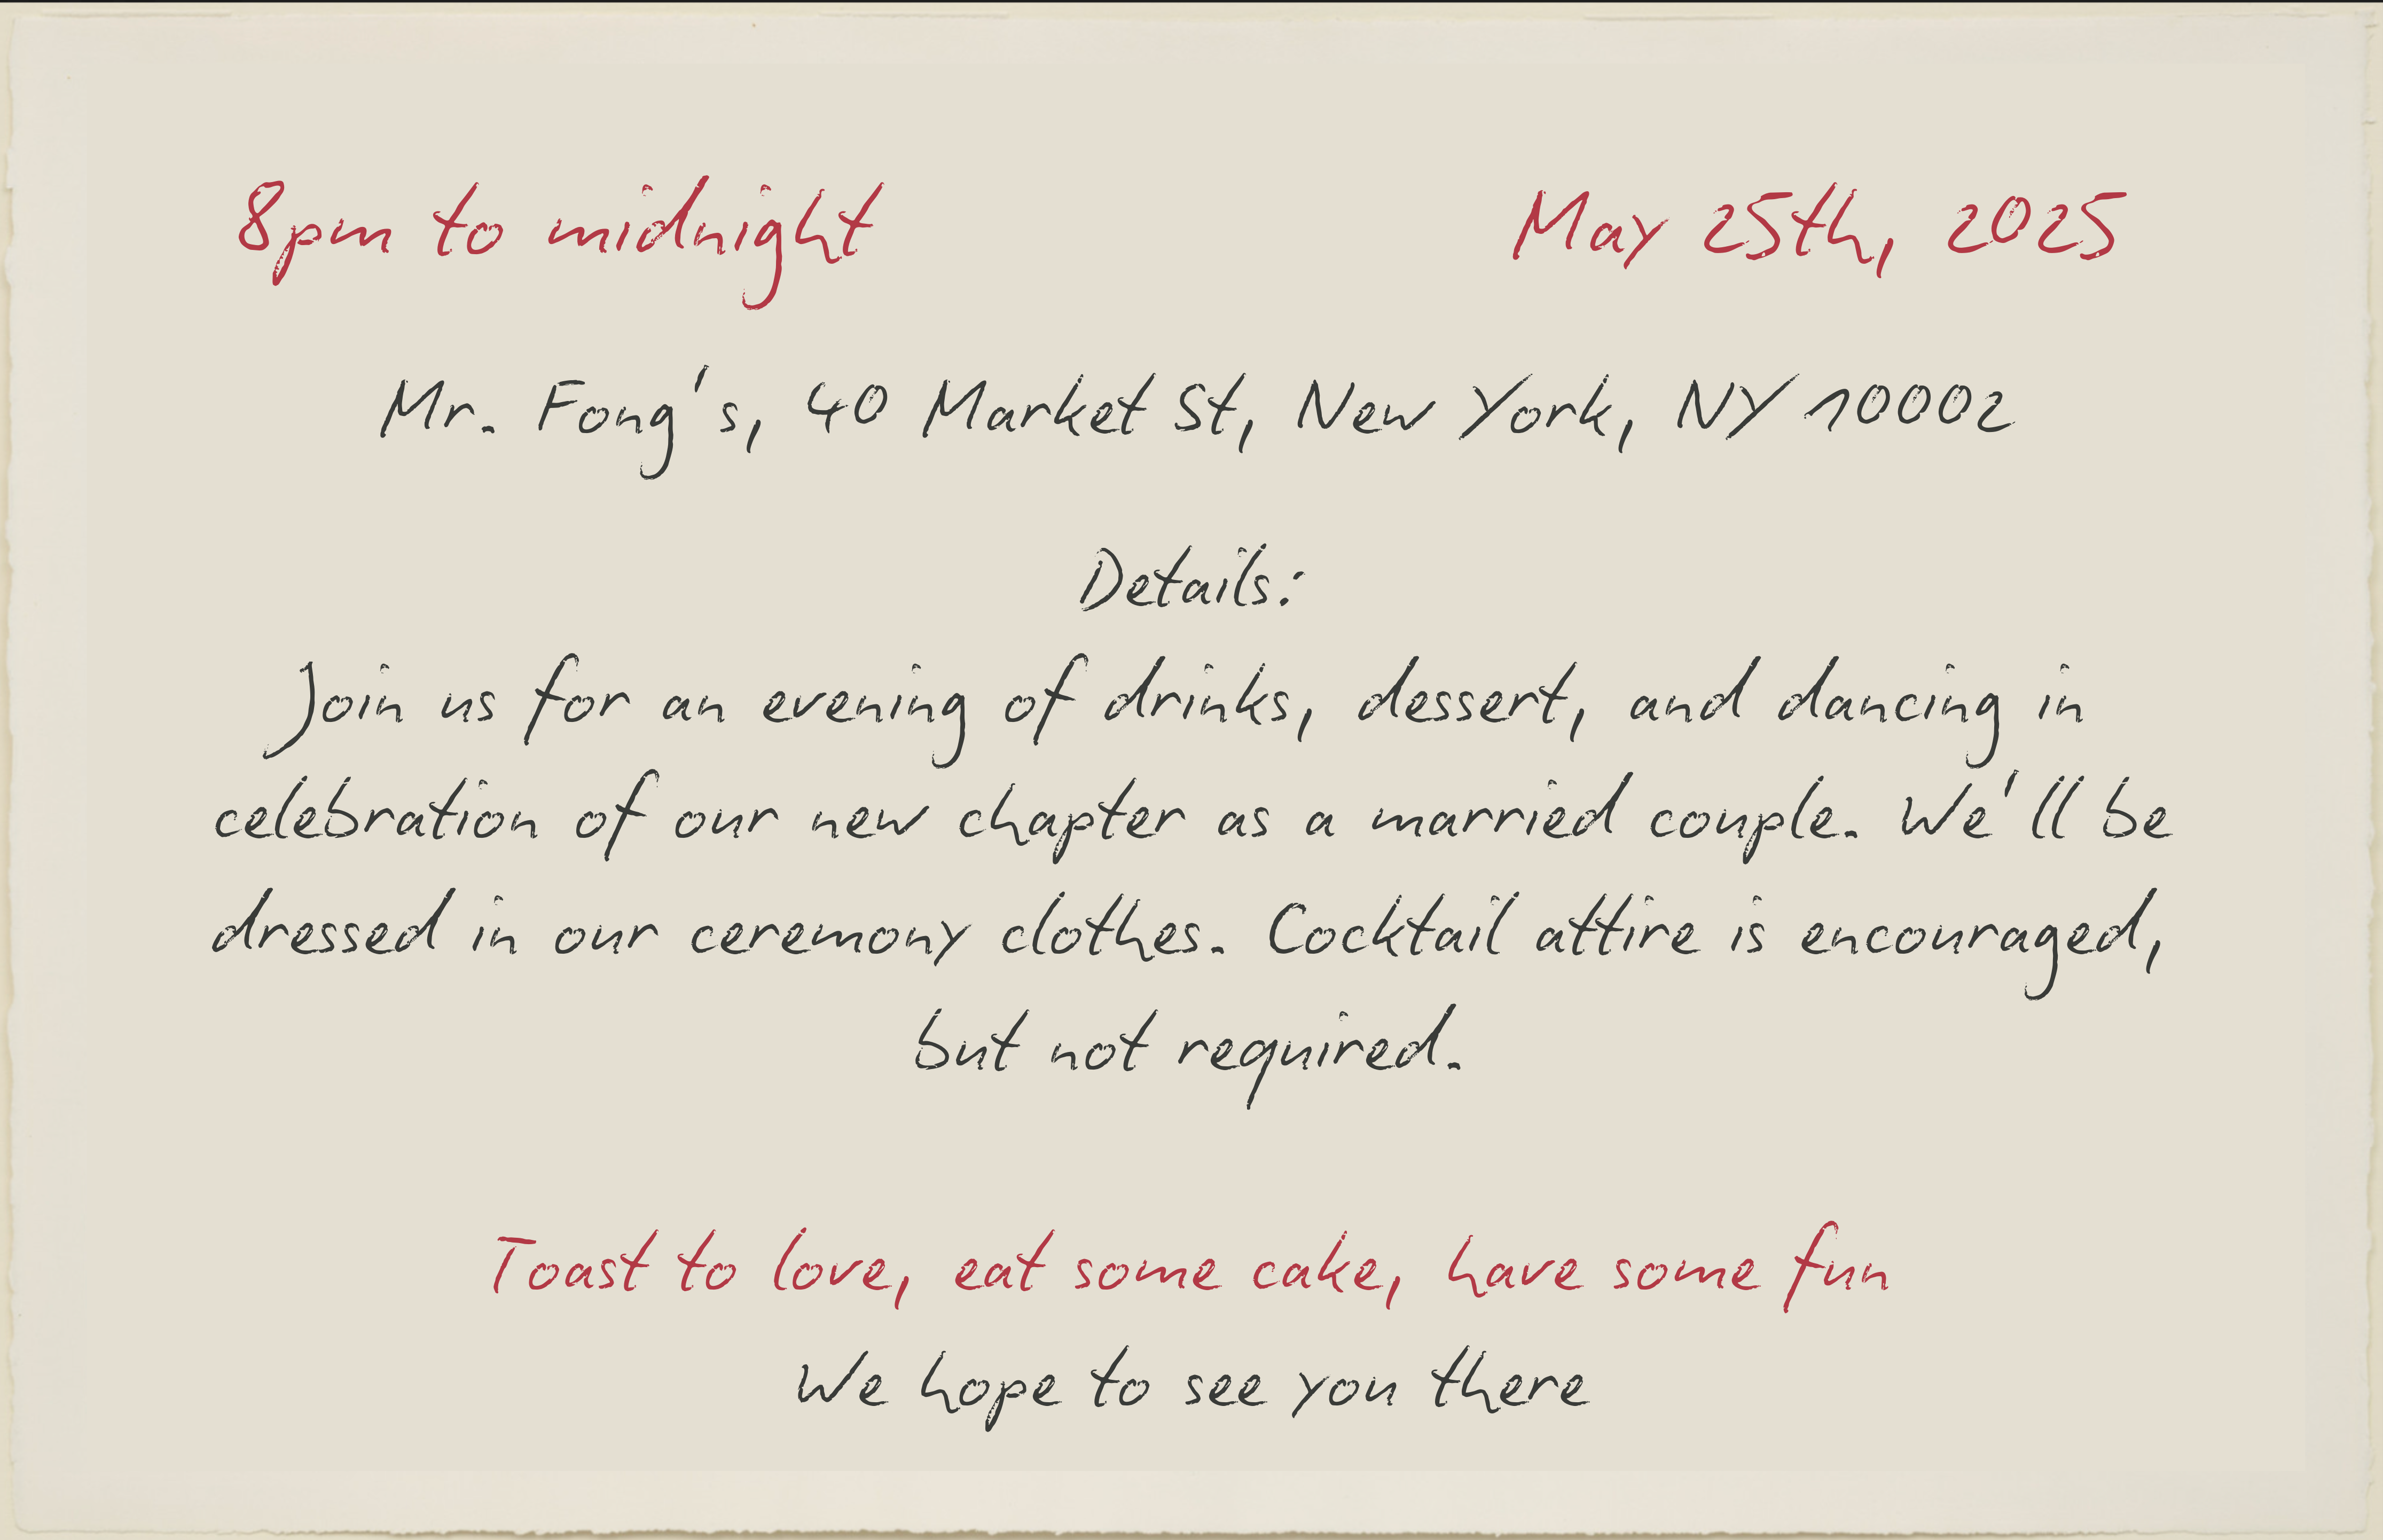 8pm to midnight May 25th, 2025
Mr. Fong's, 40 Market St, New York, NY 10002
Details:
Join us for an evening of drinks, dessert, and dancing in
celebration of our new chapter as a married couple. We'll be
dressed in our ceremony clothes. Cocktail attire is encouraged,
but not required.
Toast to love, eat some cake, have some fun
We hope to see you there